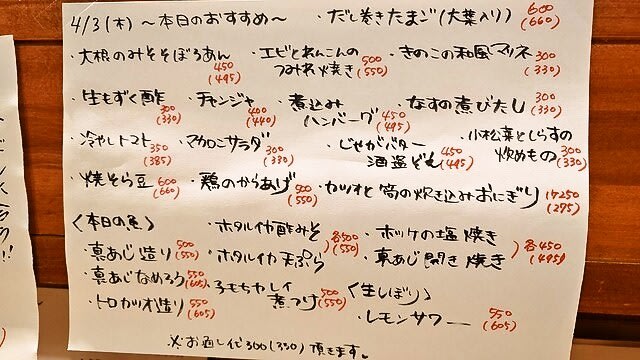 4/3(木) 〜本日のおすすめ〜 ・だし巻きたまご(大葉入り) 600 (660)
・大根のみそそぼろあん 450 (495) ・エビとれんこんのつみれ焼き 500 (550) ・きのこの和風マリネ 300 (330)
・生もずく酢 300 (330) ・チャンジャ 400 (440) ・煮込みハンバーグ 450 (495) ・なすの煮びたし 300 (330)
・冷やしトマト 350 (385) ・マカロニサラダ 300 (330) ・じゃがバター酒盗ぞえ 450 (495) ・小松菜としらすの炒めもの 300 (330)
・焼そら豆 600 (660) ・鶏のからあげ 500 (550) ・カツオと筍の炊き込みおにぎり 1ケ250 (275)
〈本日の魚〉 ・ホタルイカ酢みそ ・ホッケの塩焼き
・真あじ造り 500 (550) ・ホタルイカ天ぷら 各500 (550) ・真あじ開き焼き 各450 (495)
・真あじなめろう 550 (605) ・子もちカレイ煮つけ 500 (550) 〈生しぼり〉
・トロカツオ造り 550 (605) ・レモンサワー 550 (605)
※お通し代300(330)頂きます。